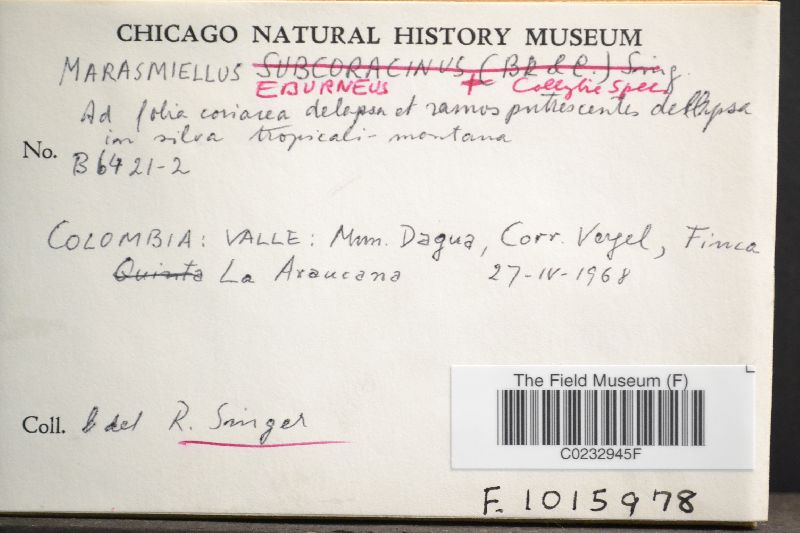 CHICAGO NATURAL HISTORY MUSEUM
MARASMIELLUS SUBCORACINUS (BR & C.) Sing.
EBURNEUS + Collybia Spec.
Ad folia coriacea delapsa et ramos putrescentes delapsa
in silva tropicali-montana
No. B 6421-2
COLOMBIA: VALLE: Mun. Dagua, Corr. Vergel, Finca
Quinta La Araucana 27-IV-1968
Coll. & det R. Singer
The Field Museum (F)
C0232945F
F. 1015978